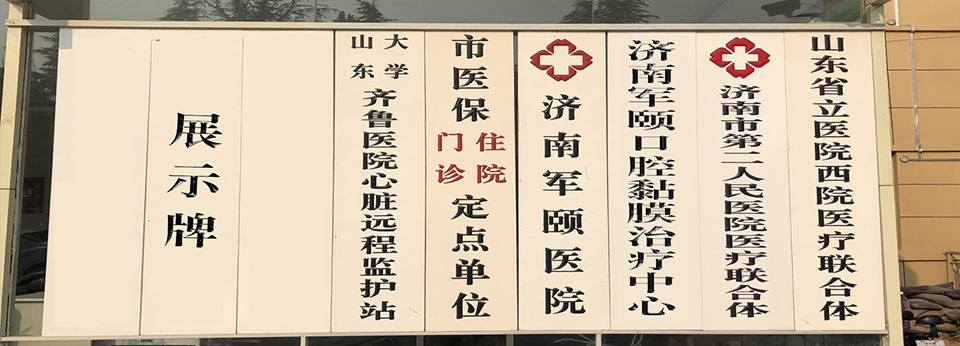 山东省立医院西院医疗联合体
济南市第二人民医院医疗联合体
济南军颐口腔黏膜治疗中心
济南军颐医院
市医保门诊住院定点单位
山东大学齐鲁医院心脏远程监护站
展示牌